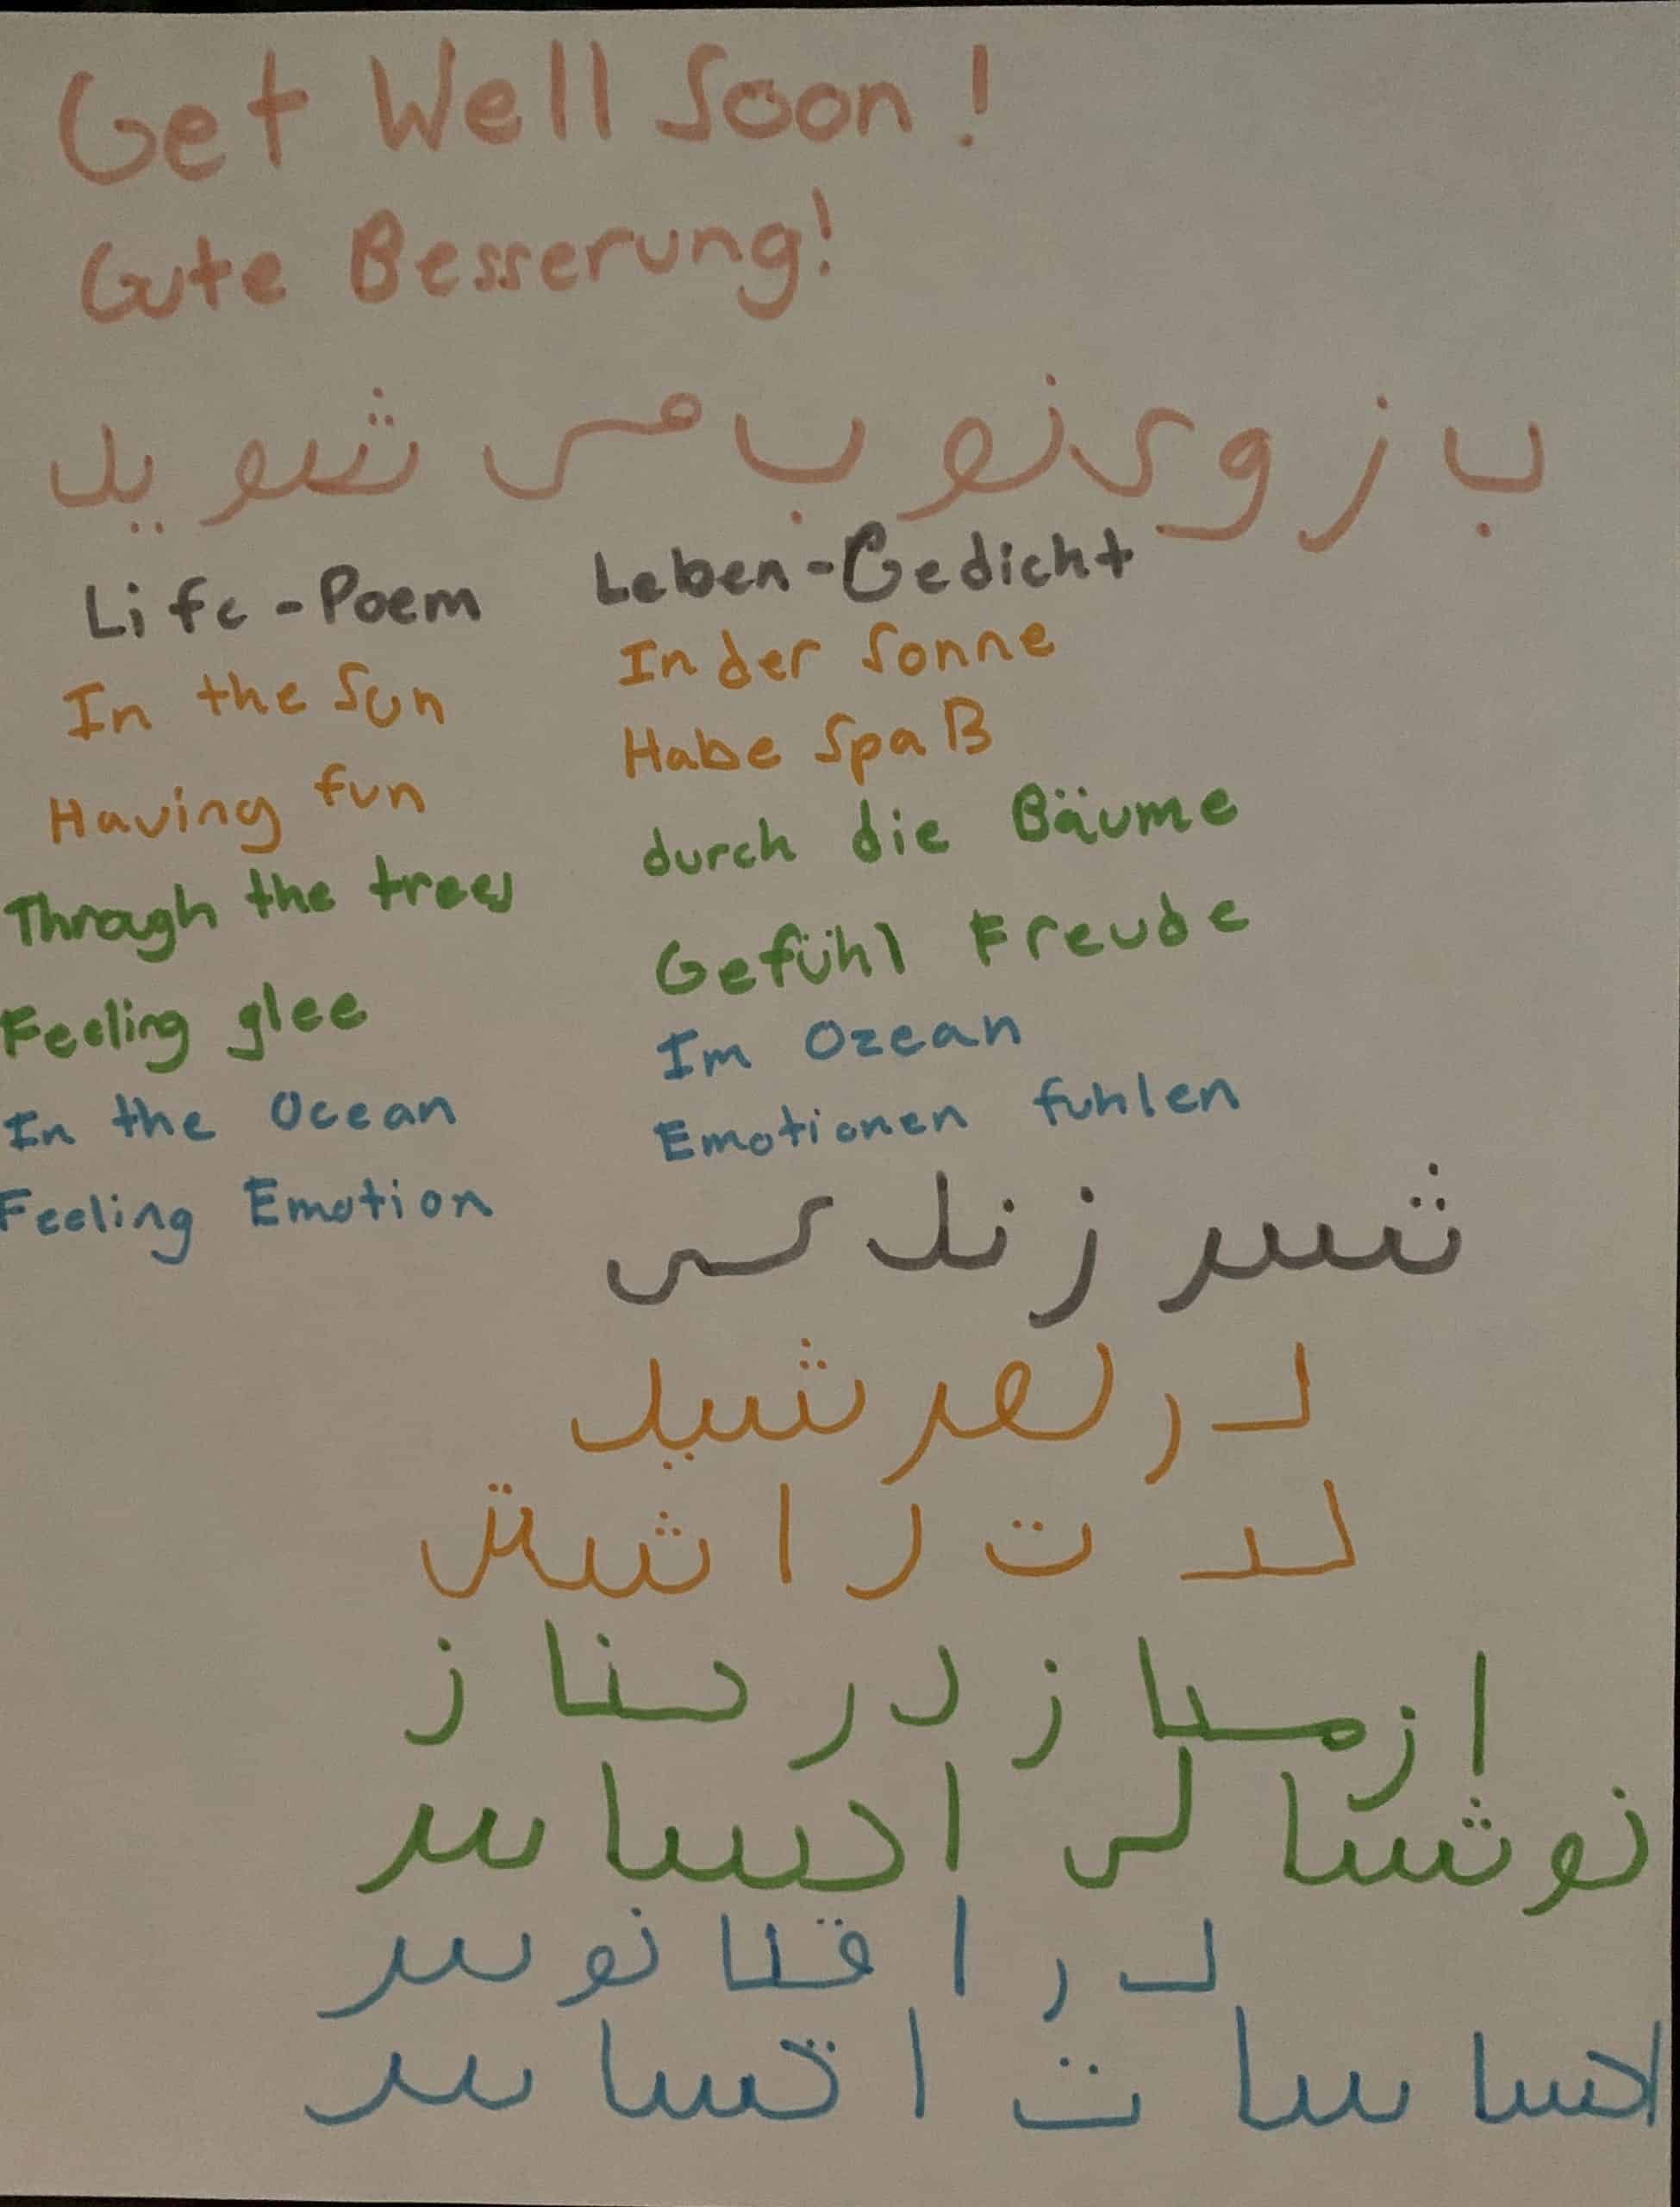 Get Well Soon!
Gute Besserung!
ب زوی نوب می شوید
Life-Poem
In the Sun
Having fun
Through the trees
Feeling glee
In the Ocean
Feeling Emotion
Leben-Gedicht
In der Sonne
Habe Spaß
durch die Bäume
Gefühl Freude
Im Ozean
Emotionen fuhlen
شسر زند
در شید
ت را
از در
نوشسا لی احساسر
در ا قیانوسر
احسا سا ت اتحساسر